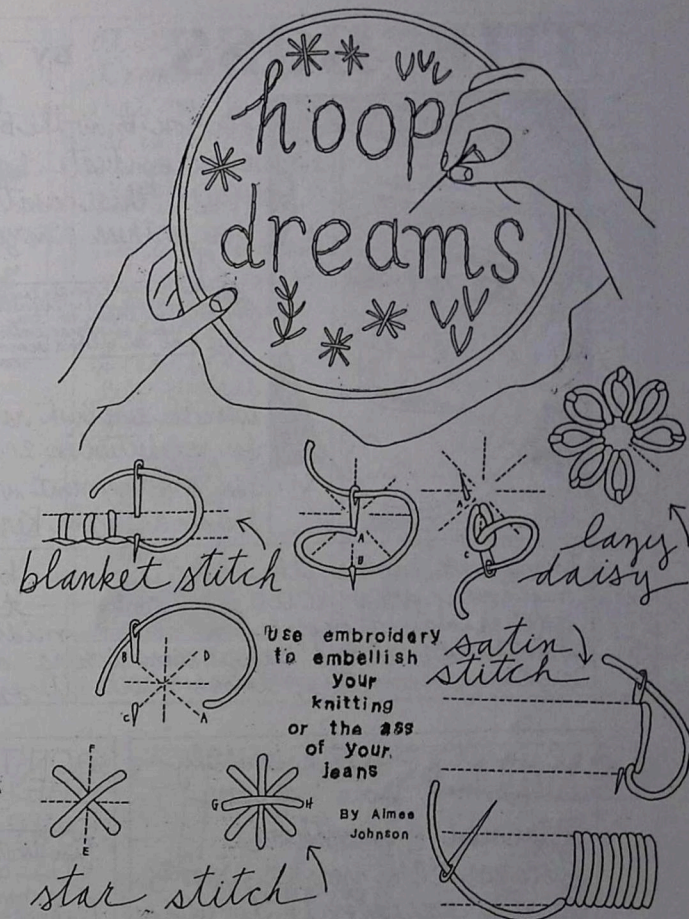 hoop
dreams
blanket stitch
A
B
A
C
lazy
daisy
B
D
C
A
use embroidery
to embellish
your
knitting
or the ass
of your
jeans
By Aimee
Johnson
satin
stitch
F
E
G
H
star stitch